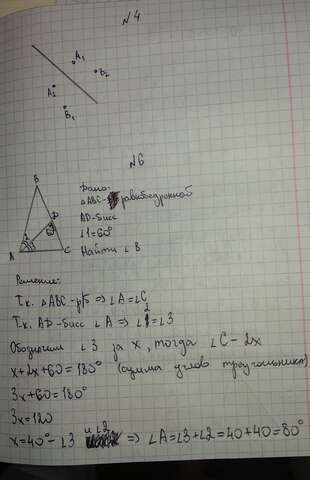 N4
A₁
B₂
A₂
B₁
N6
B
D
A
C
Дано:
△ABC - равнобедренной
AD - бисс
∠1=60°
Найти ∠B
Решение:
Т.к. △ABC - р/б ⇒ ∠A=∠C
Т.к. AD - бисс ∠A ⇒ ∠2=∠3
Обозначим ∠3 за x, тогда ∠C - 2x
x+2x+60=180° (сумма углов треугольника)
3x+60=180°
3x=120
x=40° - ∠3 и ∠2 ⇒ ∠A=∠3+∠2=40+40=80°